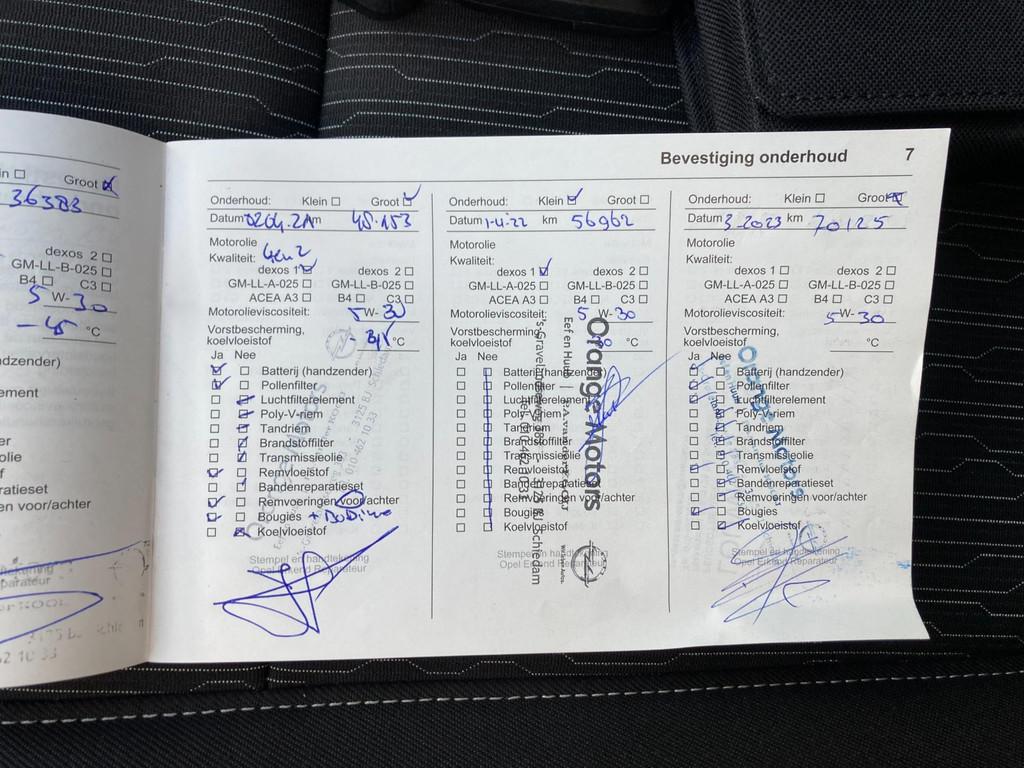 in ☐ Groot ☒
36383
dexos 2 ☐
GM-LL-B-025 ☐
B4 ☐ C3 ☐
5 W-30
-45 °C
ndzender)
ement
er
olie
f
ratieset
en voor/achter
parateur
Bevestiging onderhoud 7
Onderhoud: Klein ☐ Groot ☑
Datum 0204.21 km 48.153
Motorolie
Kwaliteit: Gen 2
dexos 1 ☑ dexos 2 ☐
GM-LL-A-025 ☐ GM-LL-B-025 ☐
ACEA A3 ☐ B4 ☐ C3 ☐
Motorolieviscositeit: 5W-30
Vorstbescherming,
koelvloeistof °C
Ja Nee
☑ ☐ Batterij (handzender)
☑ ☐ Pollenfilter
☐ ☑ Luchtfilterelement
☐ ☑ Poly-V-riem
☐ ☑ Tandriem
☐ ☑ Brandstoffilter
☐ ☑ Transmissieolie
☑ ☐ Remvloeistof
☐ ☑ Bandenreparatieset
☑ ☐ Remvoeringen voor/achter
☑ ☐ Bougies
☐ ☒ Koelvloeistof
Stempel en handtekening
Opel Erkend Reparateur
3125 BJ Schiedam
010-462 10 33
Onderhoud: Klein ☑ Groot ☐
Datum 1-4-22 km 56962
Motorolie
Kwaliteit:
dexos 1 ☑ dexos 2 ☐
GM-LL-A-025 ☐ GM-LL-B-025 ☐
ACEA A3 ☐ B4 ☐ C3 ☐
Motorolieviscositeit: 5 W-30
Vorstbescherming,
koelvloeistof °C
Ja Nee
☐ ☐ Batterij (handzender)
☐ ☐ Pollenfilter
☐ ☐ Luchtfilterelement
☐ ☐ Poly-V-riem
☐ ☐ Tandriem
☐ ☐ Brandstoffilter
☐ ☐ Transmissieolie
☐ ☐ Remvloeistof
☐ ☐ Bandenreparatieset
☐ ☐ Remvoeringen voor/achter
☐ ☐ Bougies
☐ ☐ Koelvloeistof
Stempel en handtekening
Opel Erkend Reparateur
Orange Motors
3125 BJ Schiedam
Onderhoud: Klein ☐ Groot ☑
Datum 3-2023 km 70125
Motorolie
Kwaliteit:
dexos 1 ☐ dexos 2 ☐
GM-LL-A-025 ☐ GM-LL-B-025 ☐
ACEA A3 ☐ B4 ☐ C3 ☐
Motorolieviscositeit: 5W-30
Vorstbescherming,
koelvloeistof °C
Ja Nee
☑ ☐ Batterij (handzender)
☑ ☐ Pollenfilter
☐ ☑ Luchtfilterelement
☐ ☑ Poly-V-riem
☐ ☑ Tandriem
☐ ☑ Brandstoffilter
☐ ☑ Transmissieolie
☑ ☐ Remvloeistof
☐ ☑ Bandenreparatieset
☐ ☑ Remvoeringen voor/achter
☑ ☐ Bougies
☐ ☑ Koelvloeistof
Stempel en handtekening
Opel Erkend Reparateur
Orange Motors